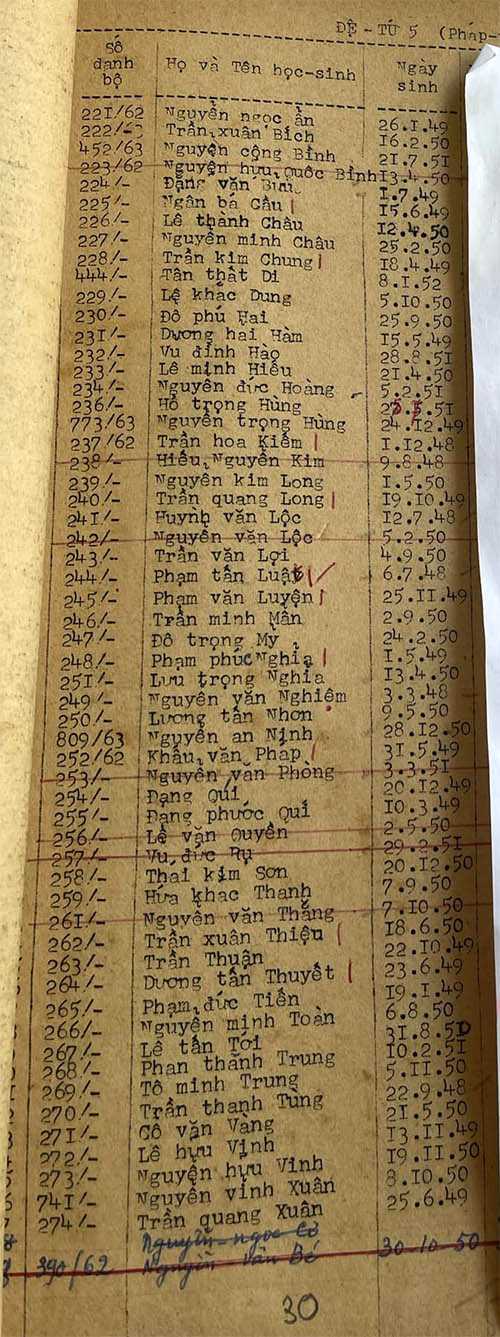 ĐỆ - TỨ 5 (Pháp-
Số danh bộ Họ và Tên học-sinh Ngày sinh
221/62 Nguyễn ngọc ẩn 26.I.49
222/-- Trần xuân Bích 16.2.50
452/63 Nguyễn công Bình 21.7.51
223/62 Nguyễn hữu Quốc Bình 13.4.50
224/- Đặng văn Bửu I.7.49
225/- Ngân bá Cầu 15.6.49
226/- Lê thành Châu 12.4.50
227/- Nguyễn minh Châu 25.2.50
228/- Trần kim Chung 18.4.49
444/- Tân thất Di 8.I.52
229/- Lê khắc Dung 5.10.50
230/- Đỗ phú Hai 25.9.50
231/- Dương hai Hàm 15.5.49
232/- Vu đình Hào 28.8.51
233/- Lê minh Hiếu 21.4.50
234/- Nguyễn đức Hoàng 5.2.51
236/- Hồ trọng Hùng .5.51
773/63 Nguyễn trọng Hùng 24.12.49
237/62 Trần hoa Kiểm I.12.48
238/- Hiếu Nguyễn Kim 9.8.48
239/- Nguyễn kim Long I.5.50
240/- Trần quang Long 19.10.49
241/- Huỳnh văn Lộc 12.7.48
242/- Nguyễn văn Lộc 5.2.50
243/- Trần văn Lợi 4.9.50
244/- Phạm tấn Luật 6.7.48
245/- Phạm văn Luyện 25.II.49
246/- Trần minh Mẫn 2.9.50
247/- Đỗ trọng Mỹ 24.2.50
248/- Phạm phúc Nghĩa I.5.49
251/- Lưu trọng Nghĩa 13.4.50
249/- Nguyễn văn Nghiêm 3.3.48
250/- Lương tấn Nhơn 9.5.50
809/63 Nguyễn an Ninh 28.12.50
252/62 Khấu văn Pháp 31.5.49
253/- Nguyễn văn Phòng 3.3.51
254/- Đặng Quí 20.12.49
255/- Đặng phước Quí 10.3.49
256/- Lê văn Quyền 2.5.50
257/- Vu đức Rụ 29.2.51
258/- Thái kim Sơn 20.12.50
259/- Hứa khac Thanh 7.9.50
261/- Nguyễn văn Thắng 7.10.50
262/- Trần xuân Thiệu 18.6.50
263/- Trần Thuận 22.10.49
264/- Dương tấn Thuyết 23.6.49
265/- Phạm đức Tiến 19.I.49
266/- Nguyễn minh Toàn 6.8.50
267/- Lê tấn Tới 31.8.50
268/- Phan thành Trung 10.2.51
269/- Tô minh Trung 5.II.50
270/- Trần thanh Tùng 22.9.48
271/- Cô văn Vàng 21.5.50
272/- Lê hựu Vinh 13.II.49
273/- Nguyễn hựu Vinh 19.II.50
741/- Nguyễn vinh Xuân 8.10.50
274/- Trần quang Xuân 25.6.49
Nguyễn ngọc Cơ
390/62 Nguyễn Văn Bé 30-10-50
30